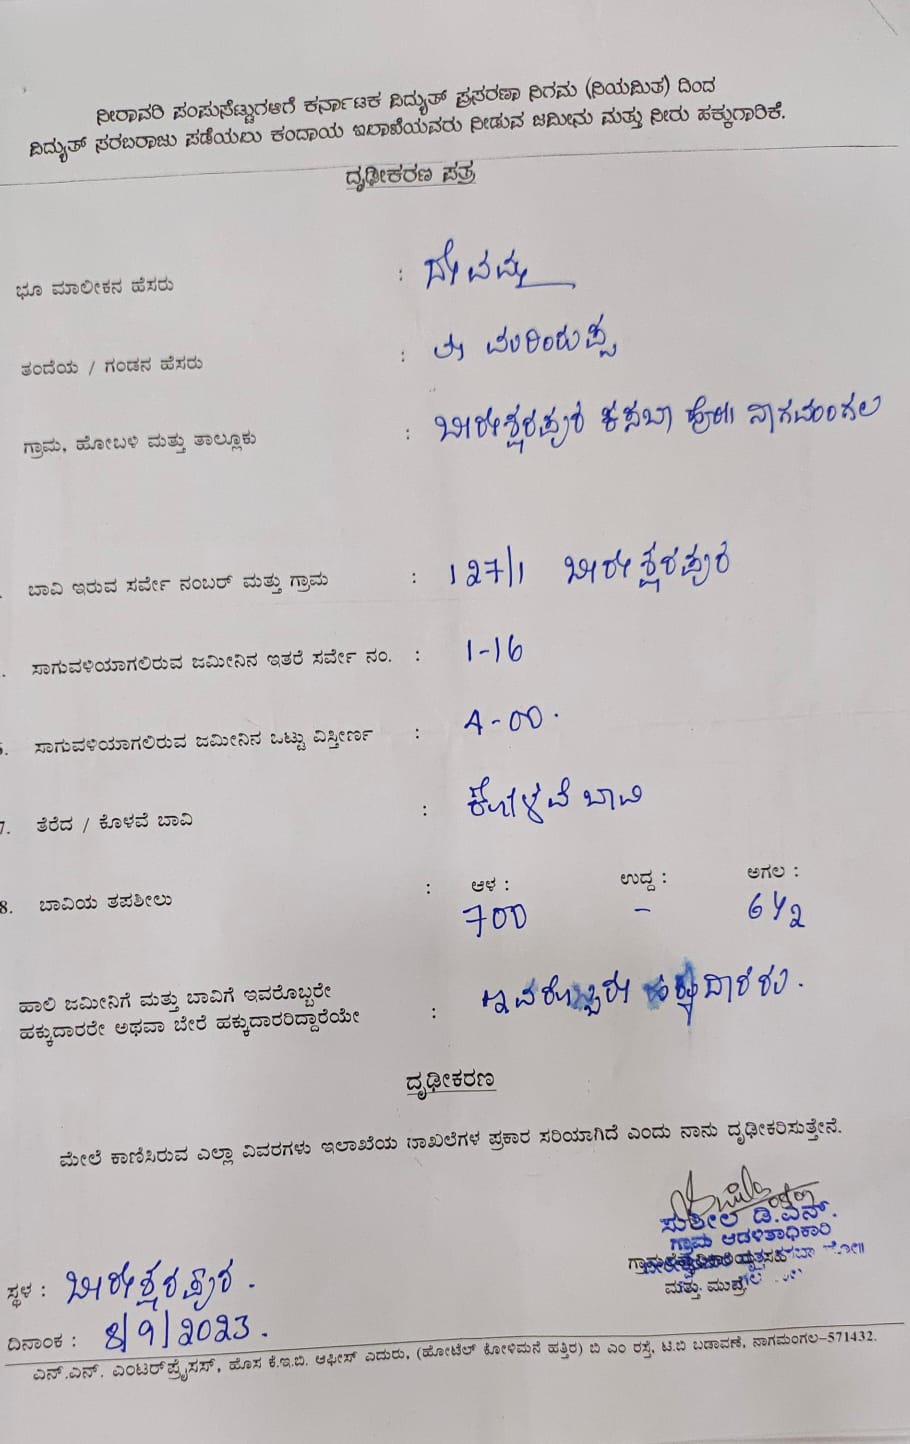 ನೀರಾವರಿ ಪಂಪುಸೆಟ್ಟುಗಳಿಗೆ ಕರ್ನಾಟಕ ವಿದ್ಯುತ್ ಪ್ರಸರಣಾ ನಿಗಮ (ನಿಯಮಿತ) ದಿಂದ
ವಿದ್ಯುತ್ ಸರಬರಾಜು ಪಡೆಯಲು ಕಂದಾಯ ಇಲಾಖೆಯವರು ನೀಡುವ ಜಮೀನು ಮತ್ತು ನೀರು ಹಕ್ಕುಗಾರಿಕೆ.
ದೃಢೀಕರಣ ಪತ್ರ
ಭೂ ಮಾಲೀಕನ ಹೆಸರು :
ತಂದೆಯ / ಗಂಡನ ಹೆಸರು :
ಗ್ರಾಮ, ಹೋಬಳಿ ಮತ್ತು ತಾಲ್ಲೂಕು : ಬೀರೇಶ್ವರಪುರ ಕಸಬಾ ಹೋ॥ ನಾಗಮಂಗಲ
ಬಾವಿ ಇರುವ ಸರ್ವೇ ನಂಬರ್ ಮತ್ತು ಗ್ರಾಮ : 127/1 ಬೀರೇಶ್ವರಪುರ
ಸಾಗುವಳಿಯಾಗಲಿರುವ ಜಮೀನಿನ ಇತರೆ ಸರ್ವೇ ನಂ. : 1-16
ಸಾಗುವಳಿಯಾಗಲಿರುವ ಜಮೀನಿನ ಒಟ್ಟು ವಿಸ್ತೀರ್ಣ : 4-00.
7. ತೆರೆದ / ಕೊಳವೆ ಬಾವಿ : ಕೊಳವೆ ಬಾವಿ
8. ಬಾವಿಯ ತಪಶೀಲು : ಆಳ : ಉದ್ದ : ಅಗಲ :
700 - 6 ½
ಹಾಲಿ ಜಮೀನಿಗೆ ಮತ್ತು ಬಾವಿಗೆ ಇವರೊಬ್ಬರೇ
ಹಕ್ಕುದಾರರೇ ಅಥವಾ ಬೇರೆ ಹಕ್ಕುದಾರರಿದ್ದಾರೆಯೇ : ಇವರೊಬ್ಬರೇ ಹಕ್ಕುದಾರರು.
ದೃಢೀಕರಣ
ಮೇಲೆ ಕಾಣಿಸಿರುವ ಎಲ್ಲಾ ವಿವರಗಳು ಇಲಾಖೆಯ ದಾಖಲೆಗಳ ಪ್ರಕಾರ ಸರಿಯಾಗಿದೆ ಎಂದು ನಾನು ದೃಢೀಕರಿಸುತ್ತೇನೆ.
ಸುಶೀಲ ಡಿ.ಎನ್.
ಗ್ರಾಮ ಆಡಳಿತಾಧಿಕಾರಿ
ಮತ್ತು
ಸ್ಥಳ : ಬೀರೇಶ್ವರಪುರ.
ದಿನಾಂಕ : 8/9/2023.
ಎನ್.ಎನ್. ಎಂಟರ್‌ಪ್ರೈಸಸ್, ಹೊಸ ಕೆ.ಇ.ಬಿ. ಆಫೀಸ್ ಎದುರು, (ಹೋಟೆಲ್ ಕೋಳಿಮನೆ ಹತ್ತಿರ) ಬಿ ಎಂ ರಸ್ತೆ, ಟಿ.ಬಿ ಬಡಾವಣೆ, ನಾಗಮಂಗಲ-571432.